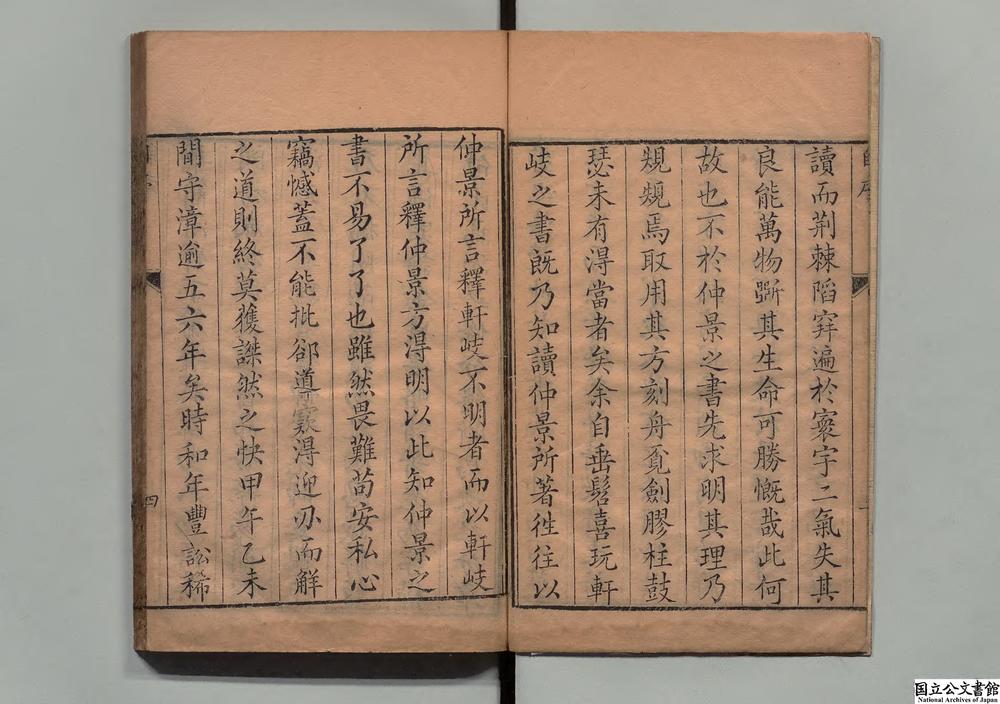 讀而荆棘陷穽遍於寰宇二氣失其
良能萬物斲其生命可勝慨哉此何
故也不於仲景之書先求明其理乃
規規焉取用其方刻舟覔劍膠柱鼓
瑟未有得當者矣余自垂髫喜玩軒
岐之書既乃知讀仲景所著徃往以
仲景所言釋軒岐不明者而以軒岐
所言釋仲景方得明以此知仲景之
書不易了了也雖然畏難苟安私心
竊憾蓋不能批郤導窾得迎刃而解
之道則終莫獲謋然之快甲午乙未
間守漳逾五六年矣時和年豐訟稀
四
国立公文書館
National Archives of Japan